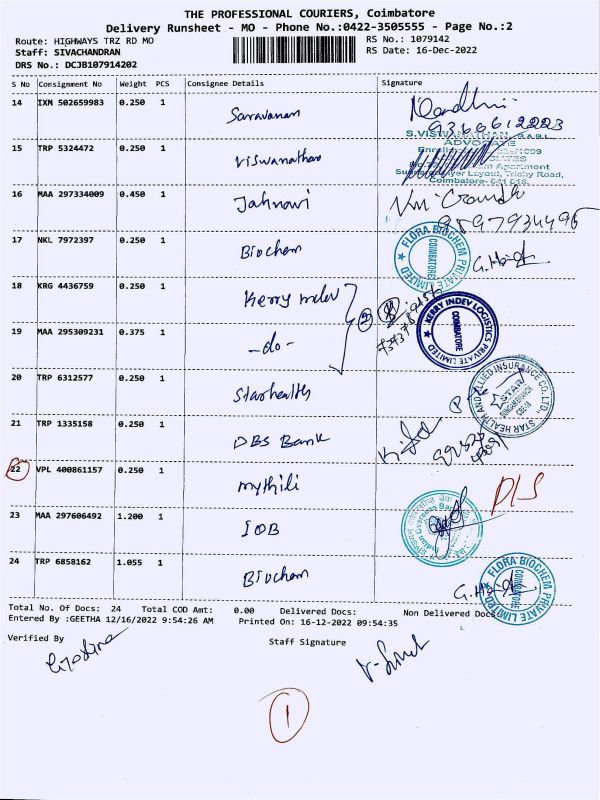 THE PROFESSIONAL COURIERS, Coimbatore
Delivery Runsheet - MO - Phone No.:0422-3505555 - Page No.:2
Route: HIGHWAYS TRZ RD MO
RS No.: 1079142
Staff: SIVACHANDRAN
RS Date: 16-Dec-2022
DRS No.: DCJB107914202
S No Consignment No Weight PCS Consignee Details Signature
14 IXM 502659983 0.250 1 Saravanan Nandhini
9366612223
15 TRP 5324472 0.250 1 Viswanathan
S.VISWANATHAN, B.A.B.L.
ADVOCATE
Apartment
Layout, Trichy Road,
Coimbatore- 641 018.
16 MAA 297334009 0.450 1 Jahnavi
9597934496
17 NKL 7972397 0.250 1 Biochem
FLORA BIOCHEM PRIVATE LIMITED
COIMBATORE
18 KRG 4436759 0.250 1 Kerry Indev
KERRY INDEV LOGISTICS PRIVATE LIMITED
COIMBATORE
19 MAA 295309231 0.375 1 -do-
20 TRP 6312577 0.250 1 Starhealth
STAR HEALTH AND ALLIED INSURANCE CO. LTD.
STAR
21 TRP 1335158 0.250 1 DBS Bank
22 VPL 400861157 0.250 1 Mythili D/S
23 MAA 297606492 1.200 1 IOB
24 TRP 6858162 1.055 1 Biochem
FLORA BIOCHEM PRIVATE LIMITED
COIMBATORE
Total No. Of Docs: 24 Total COD Amt: 0.00 Delivered Docs: Non Delivered Docs:
Entered By :GEETHA 12/16/2022 9:54:26 AM Printed On: 16-12-2022 09:54:35
Verified By Staff Signature
1